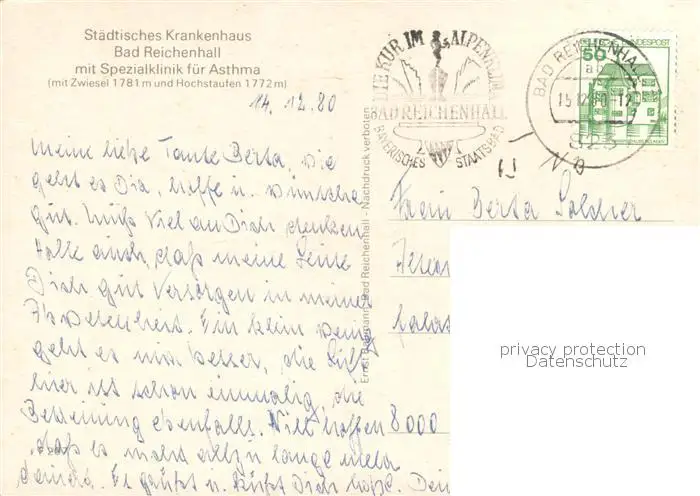 Städtisches Krankenhaus
Bad Reichenhall
mit Spezialklinik für Asthma
(mit Zwiesel 1781 m und Hochstaufen 1772 m)
14.12.80
Meine liebe Tante Berta, wie
geht es Dir, hoffe u. wünsche
gut. Muß viel an Dich denken
Hoffe auch, daß meine Leute
Dich gut versorgen in meiner
Abwesenheit. Ein klein wenig
geht es mir besser, die Luft
hier ist schon einmalig, die
Betreuung ebenfalls. Will hoffen
daß es nicht allzu lange mehr
dauert. Es grüßt u. küßt Dich
Ernst Baumann, Bad Reichenhall - Nachdruck verboten
DIE KUR IM ALPENKLIMA
BAD REICHENHALL
BAYERISCHES STAATSBAD
DEUTSCHE BUNDESPOST
50
BAD REICHENHALL
15.12.80-12
823
Frau Berta
8000
privacy protection
Datenschutz